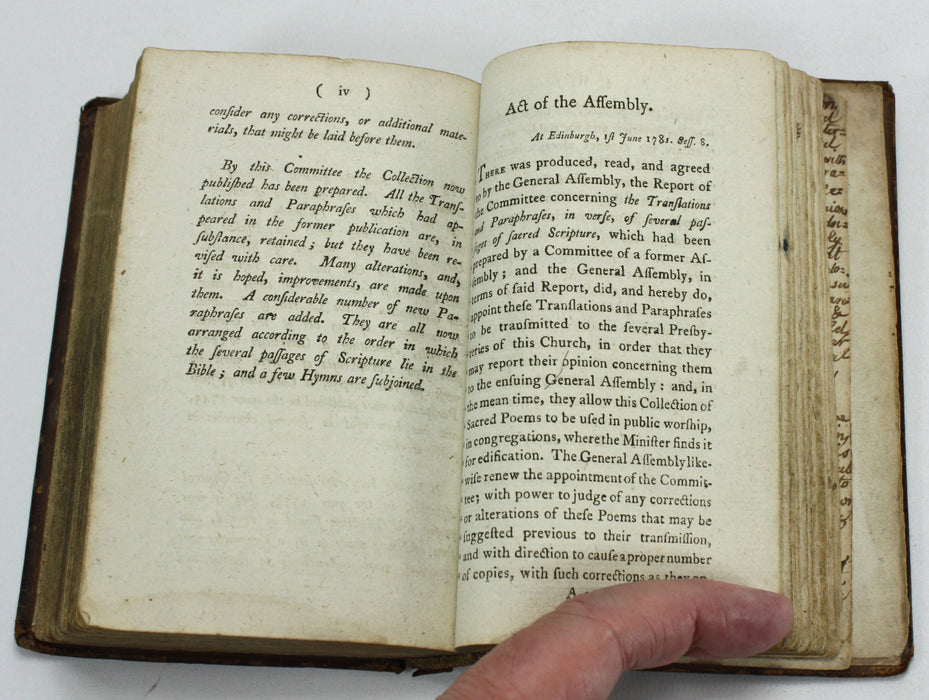 ( iv )
conſider any corrections, or additional mate-
rials, that might be laid before them.
By this Committee the Collection now
publiſhed has been prepared. All the Tranſ-
lations and Paraphraſes which had ap-
peared in the former publication are, in
ſubſtance, retained; but they have been re-
viſed with care. Many alterations, and,
it is hoped, improvements, are made upon
them. A conſiderable number of new Pa-
raphraſes are added. They are all now
arranged according to the order in which
the ſeveral paſſages of Scripture lie in the
Bible; and a few Hymns are ſubjoined.
Act of the Aſſembly.
At Edinburgh, 1ſt June 1781. Seſſ. 8.
THERE was produced, read, and agreed
to by the General Aſſembly, the Report of
the Committee concerning the Tranſlations
and Paraphraſes, in verſe, of ſeveral paſ-
ſages of ſacred Scripture, which had been
prepared by a Committee of a former Aſ-
ſembly; and the General Aſſembly, in
terms of ſaid Report, did, and hereby do,
appoint theſe Tranſlations and Paraphraſes
to be tranſmitted to the ſeveral Preſby-
teries of this Church, in order that they
may report their opinion concerning them
to the enſuing General Aſſembly: and, in
the mean time, they allow this Collection of
Sacred Poems to be uſed in public worſhip,
in congregations, where the Miniſter finds it
for edification. The General Aſſembly like-
wiſe renew the appointment of the Commit-
tee; with power to judge of any corrections
or alterations of theſe Poems that may be
ſuggeſted previous to their tranſmiſſion,
and with direction to cauſe a proper number
of copies, with ſuch corrections as they
A